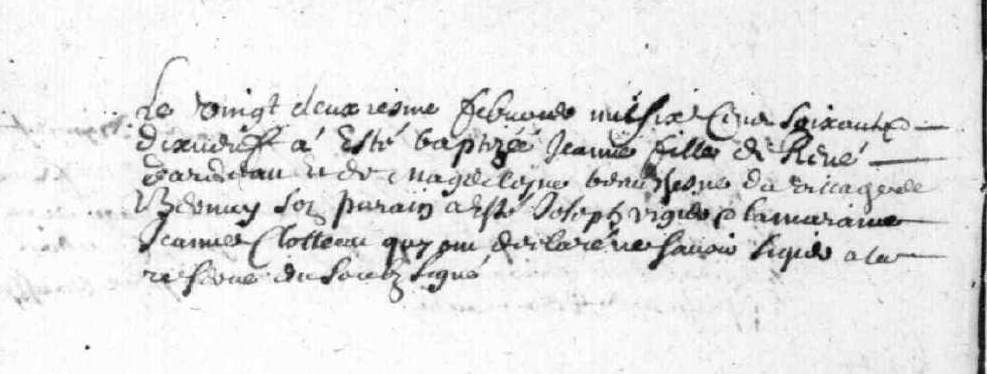 Le vingt deuxiesme febvrier mil six Cens soixante
dixneuf a Esté baptizée Jeanne fille de René
et de magdelejne du village de
son parain a Esté Joseph la maraine
Jeanne Clotteau quy ont declaré ne scavoir signer a la
reserve du soubz signé